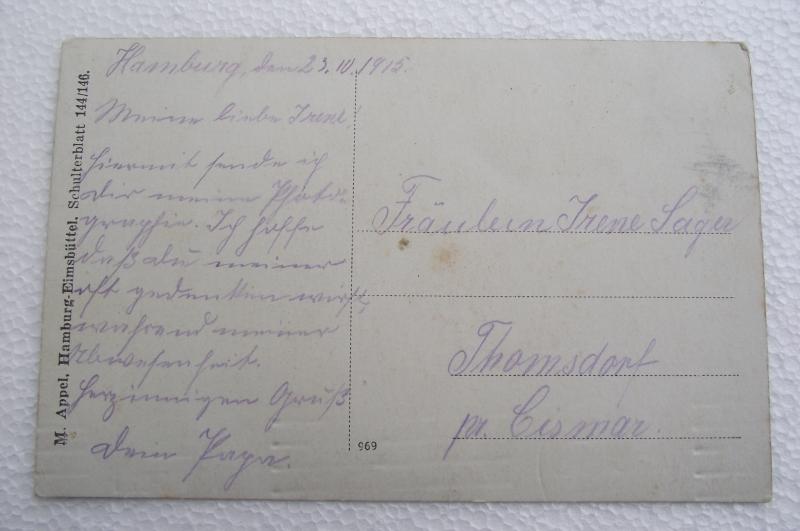 Hamburg, den 23. IV. 1915.
Meine liebe Irene!
Hiermit sende ich
Dir meine Photo-
graphie. Ich hoffe
daß du meiner
oft gedenken wirst,
während meiner
Abwesenheit.
Herzinnigen Gruß
Dein Papa.
M. Appel, Hamburg-Eimsbüttel, Schulterblatt 144/146.
969
Fräulein Irene Sager
Thomsdorf
pr. Cismar.